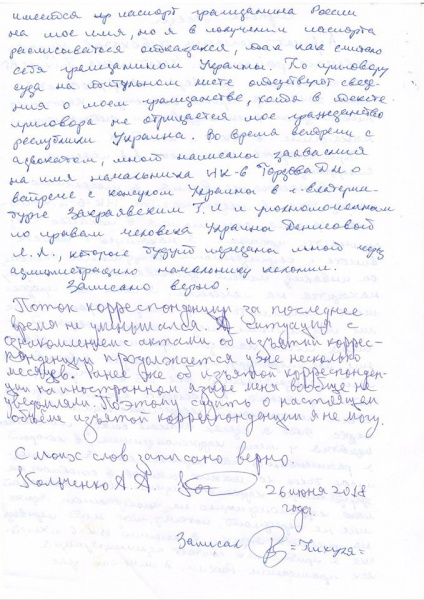 имеется пр паспорт гражданина России
на мое имя, но я в получении паспорта
расписываться отказался, так как считаю
себя гражданином Украины. По приговору
суда на титульном листе отсутствуют сведе-
ния о моем гражданстве, когда в тексте
приговора не отрицается мое гражданство
республики Украина. Во время встречи с
адвокатом, мной написаны заявления
на имя начальника ИК-6 о
встрече с консулом Украины в г. Екатерин-
бурге Закраявским Г.И и уполномоченным
по правам человека Украины Денисовой
Л.Л., которые будут переданы мной через
администрацию начальнику колонии.
Записано верно.
Поток корреспонденции за последнее
время не уменьшался. Ситуация с
ознакомлением с актами об изъятий коррес-
понденции продолжается уже несколько
месяцев. Ранее же об изъятой корреспонден-
ции на иностранном языке меня вообще не
уведомляли. Поэтому судить о настоящем
объёме изъятой корреспонденции я не могу.
С моих слов записано верно.
Кольченко А. А.
26 июня 2018
года.
Записал =Пихуря=